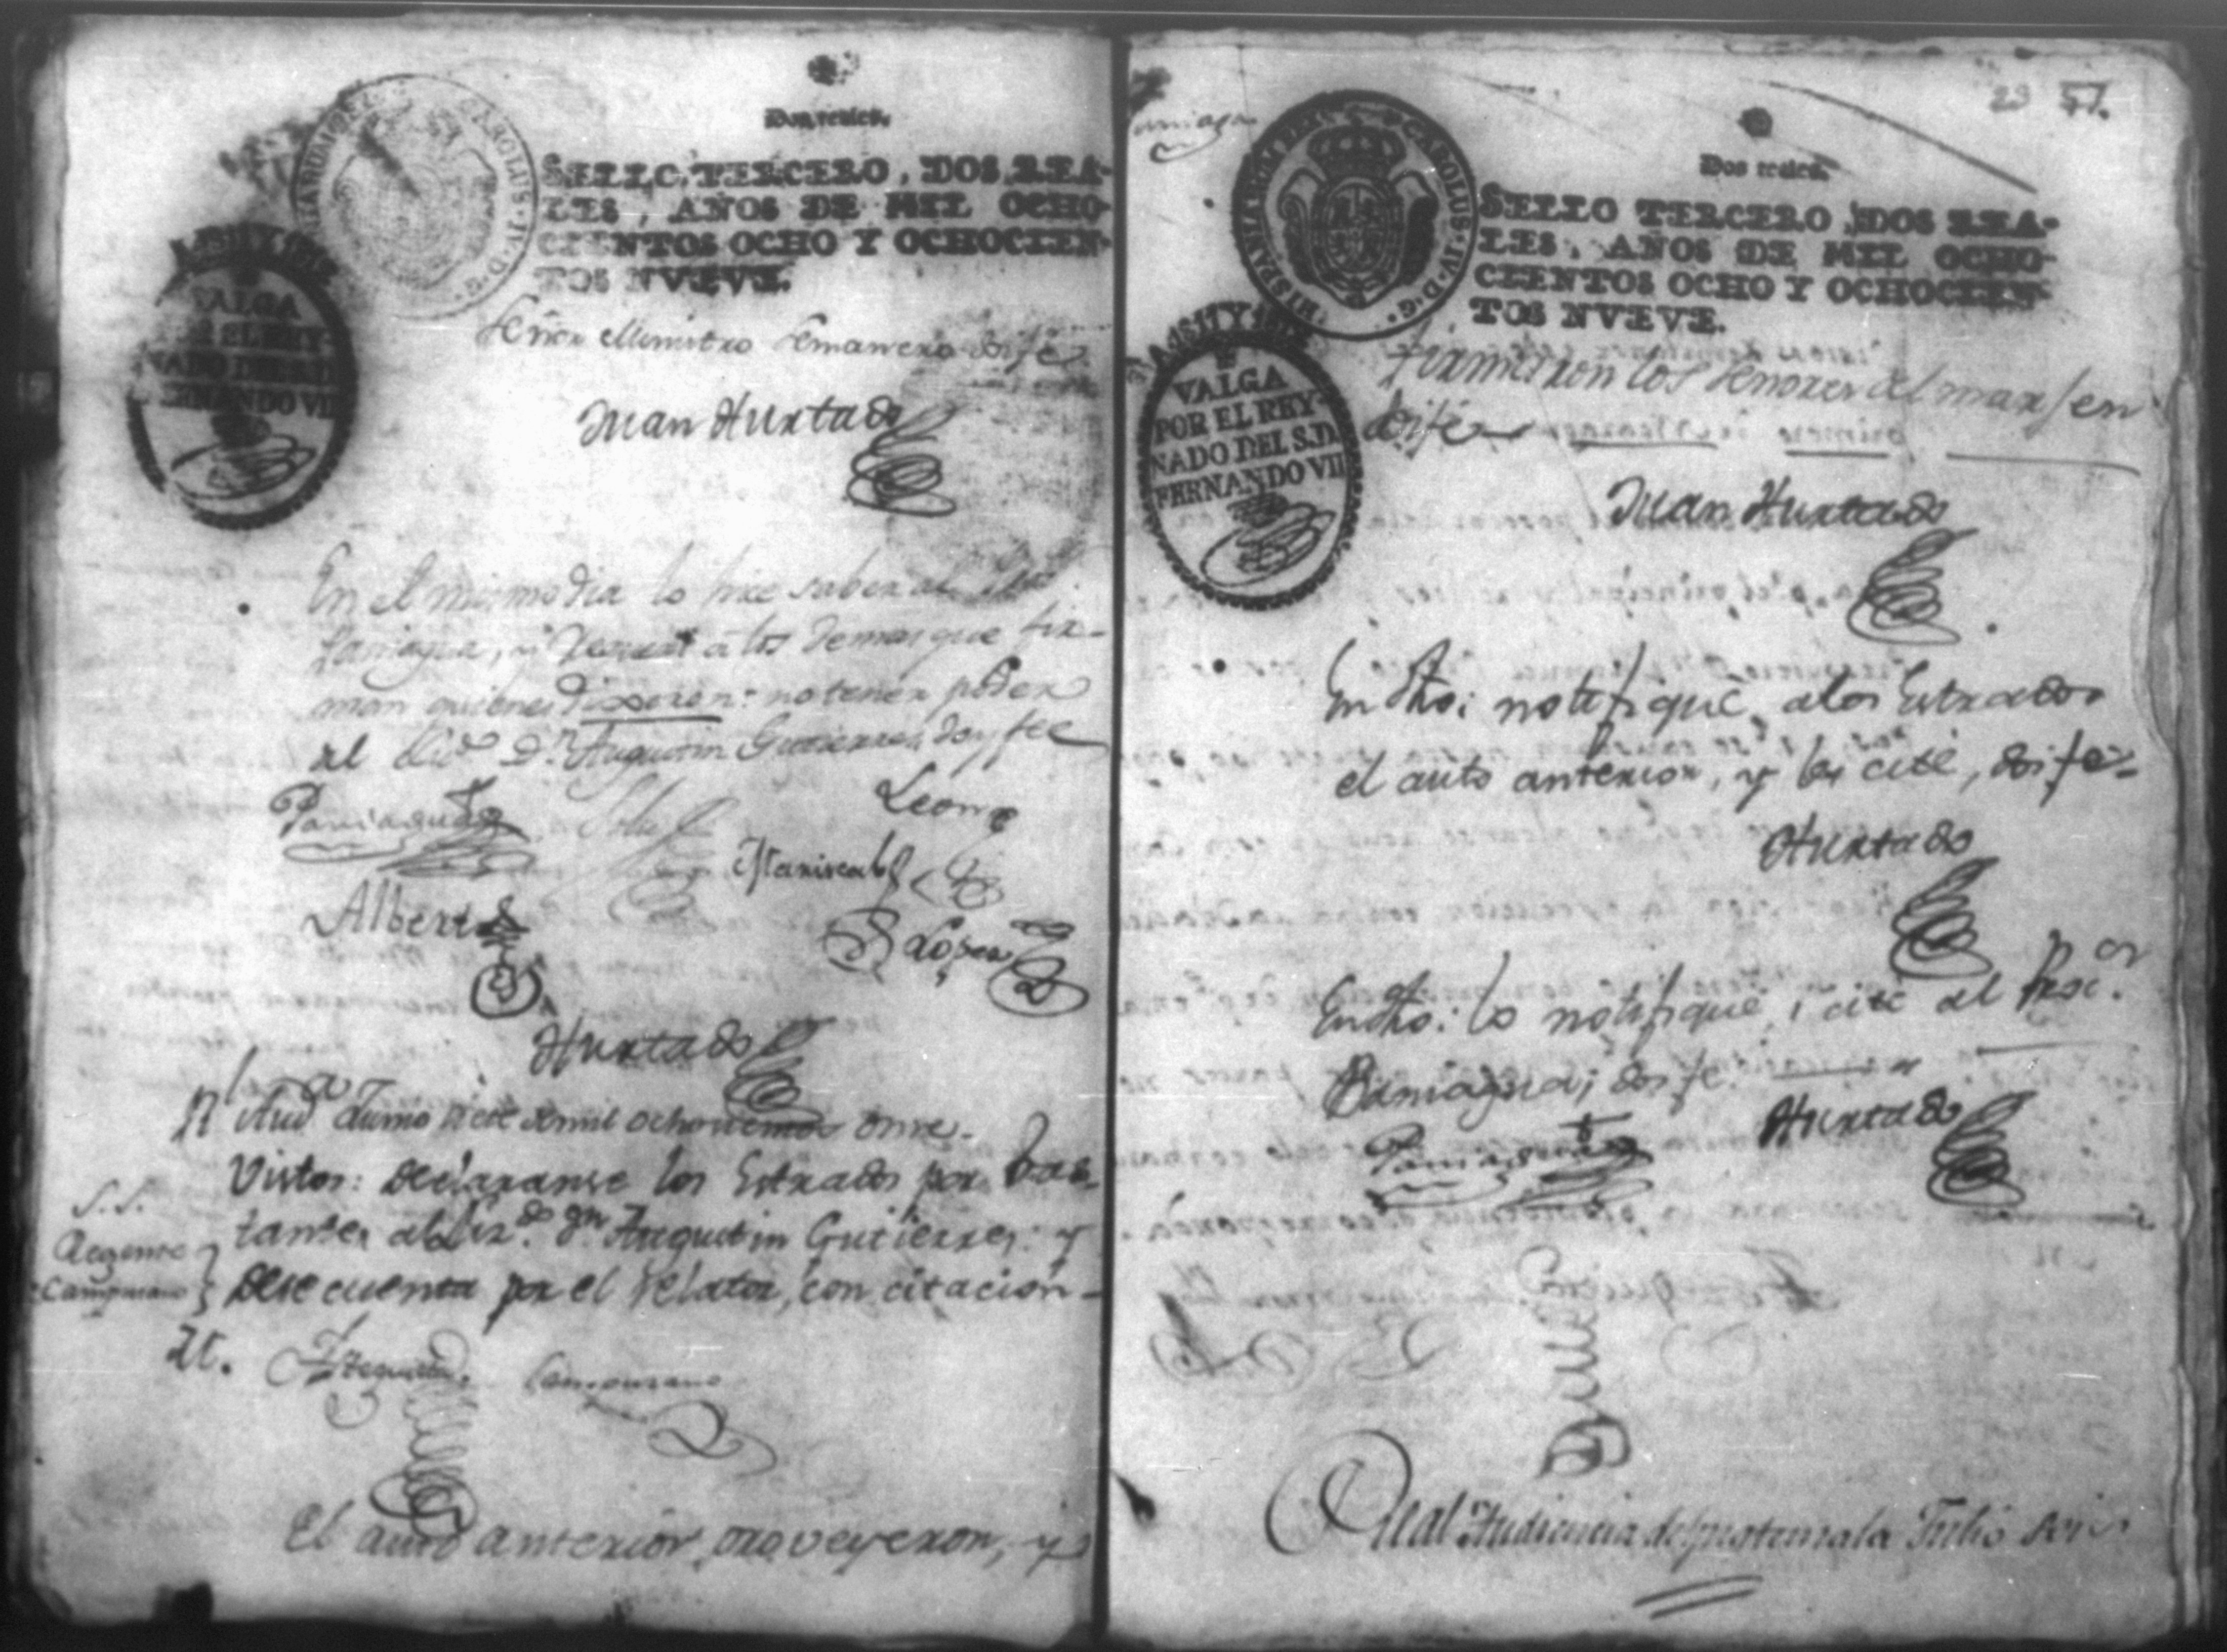 Dos reales.
SELLO TERCERO, DOS REA-
LES, AÑOS DE MIL OCHO-
CIENTOS OCHO Y OCHOCIEN-
TOS NVEVE.
HISPANIARUM REX CAROLUS IV D G
VALGA
POR EL REY-
NADO DEL S.D.
FERNANDO VII
Señor Ministro Semanero doi fe
Juan Hurtado
En el mismo dia lo hice saber al
Paniagua, y a los demas que fir-
man quienes dixeron: no tener poder
del Lic.do D.n Augustin Gutierrez, doy fee
Paniagua
Leon
Mariscal
Alberto
López
Hurtado
Rl. Aud.a Junio siete de mil ochocientos once.
Vistos: declaranse los Estrados por bas-
tantes al Liz.do Dn. Augustin Gutierrez: y
dese cuenta por el relator, con citacion-
S.S.
Regente
Campuzano
Campuzano
El auto anterior, proveyeron, y
29 57.
Dos reales.
SELLO TERCERO, DOS REA-
LES, AÑOS DE MIL OCHO-
CIENTOS OCHO Y OCHOCIEN-
TOS NVEVE.
HISPANIARUM REX CAROLUS IV D G
VALGA
POR EL REY-
NADO DEL S.D.
FERNANDO VII
firmaron los señores del margen
doi fe
Juan Hurtado
En dho: notifiqué, a los Estrados
el auto anterior, y les cité, doi fe-
Hurtado
En dho: lo notifiqué, i cité al Proc.or
Paniagua; doi fe
Paniagua
Hurtado
Real Audiencia de Guatemala Julio seis